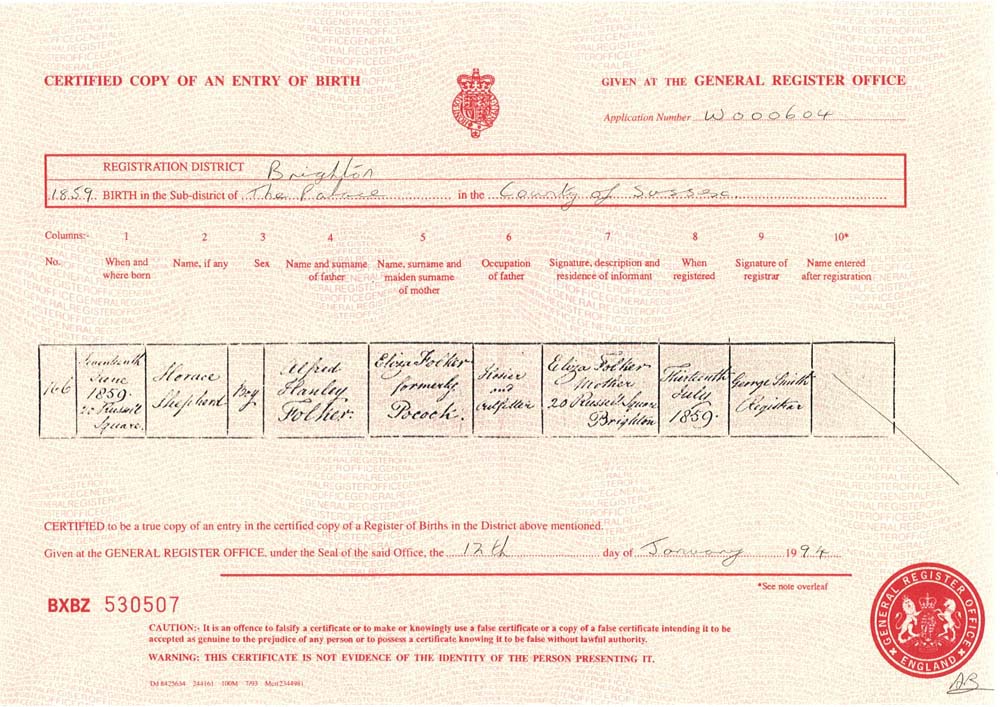 CERTIFIED COPY OF AN ENTRY OF BIRTH
GIVEN AT THE GENERAL REGISTER OFFICE
Application Number W000604
REGISTRATION DISTRICT Brighton
1859. BIRTH in the Sub-district of The Palace in the County of Sussex
Columns:- 1 2 3 4 5 6 7 8 9 10*
No. When and where born Name, if any Sex Name and surname of father Name, surname and maiden surname of mother Occupation of father Signature, description and residence of informant When registered Signature of registrar Name entered after registration
166
Seventeenth
June
1859.
20 Russell
Square.
Horace
Shepherd
Boy
Alfred
Hanley
Folker.
Eliza Folker
formerly
Pocock.
Hosier
and
Outfitter
Eliza Folker
Mother
20 Russell Square
Brighton
Thirteenth
July
1859.
George Smith
Registrar
CERTIFIED to be a true copy of an entry in the certified copy of a Register of Births in the District above mentioned.
Given at the GENERAL REGISTER OFFICE, under the Seal of the said Office, the 12th day of January 1994
*See note overleaf
BXBZ 530507
CAUTION:- It is an offence to falsify a certificate or to make or knowingly use a false certificate or a copy of a false certificate intending it to be
accepted as genuine to the prejudice of any person or to possess a certificate knowing it to be false without lawful authority.
WARNING: THIS CERTIFICATE IS NOT EVIDENCE OF THE IDENTITY OF THE PERSON PRESENTING IT.
Dd 8425634 244161 100M 7/93 Mcr(2344981)
GENERAL REGISTER OFFICE
ENGLAND
AB